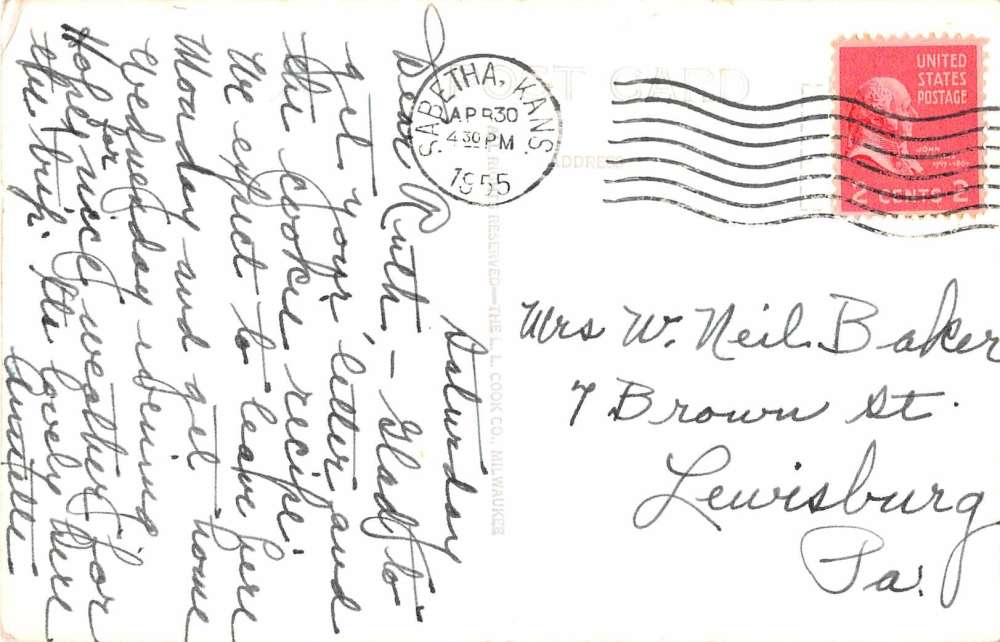 Saturday
Dear Ruth, – Glad to
get your letter and
the cookie recipe.
We expect to leave here
Monday and get home
Wednesday evening
Hope for nice weather for
the trip. Its lovely here
POST CARD
ADDRESS
RESERVED—THE L. L. COOK CO., MILWAUKEE
SABETHA, KANS.
APR 30
4 30 PM
1955
UNITED
STATES
POSTAGE
JOHN
2 CENTS 2
Mrs W. Neil Baker
7 Brown St.
Lewisburg
Pa.